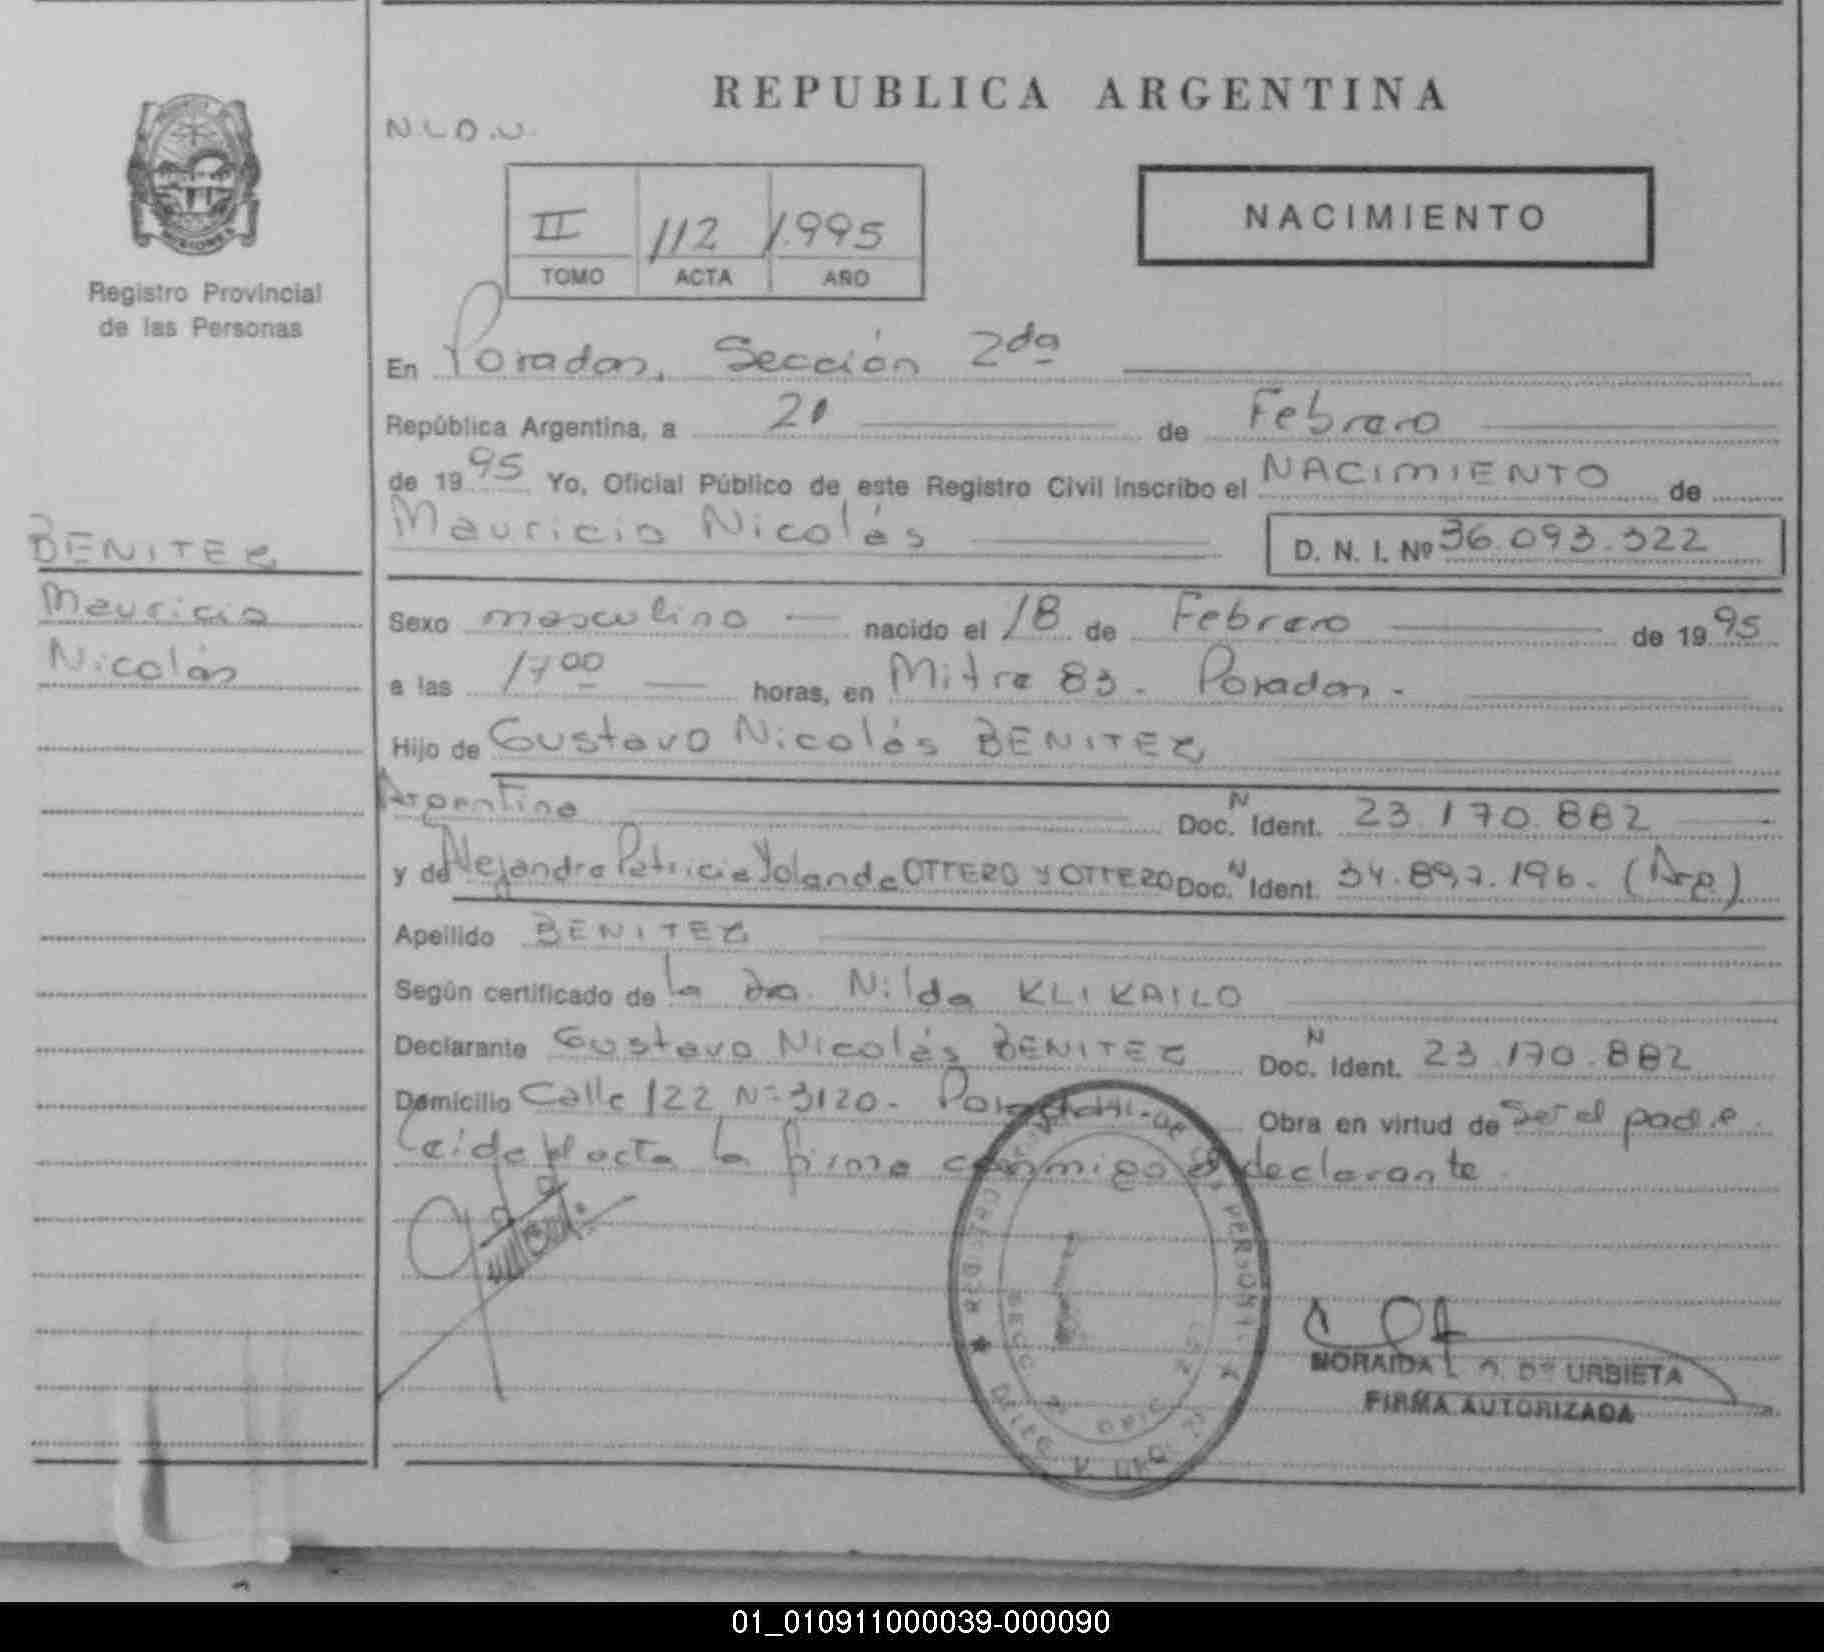 REPUBLICA ARGENTINA
N.L.D.U.
MISIONES
Registro Provincial
de las Personas
II 112 1.995
TOMO ACTA AÑO
NACIMIENTO
En Posadas, Sección 2da
República Argentina, a 21 de Febrero
de 1995 Yo, Oficial Público de este Registro Civil inscribo el NACIMIENTO de
Mauricio Nicolás D. N. I. Nº 36.093.322
BENITEZ
Mauricio
Nicolás
Sexo masculino nacido el 18 de Febrero de 1995
a las 17 00 horas, en Mitre 83. Posadas.
Hijo de Gustavo Nicolás BENITEZ
Argentino Doc. N Ident. 23.170.882
y de Alejandra Patricia Yolanda OTTERO Y OTTERO Doc. N Ident. 34.897.196. (Arg)
Apellido BENITEZ
Según certificado de la Dra. Nilda KLIKAILO
Declarante Gustavo Nicolás BENITEZ Doc. N Ident. 23.170.882
Domicilio Calle 122 Nº 3120. Posadas Obra en virtud de Ser el padre.
Leída el acta la firma conmigo el declarante.
DE LAS PERSONAS
NORAIDA DE URBIETA
FIRMA AUTORIZADA
01_010911000039-000090